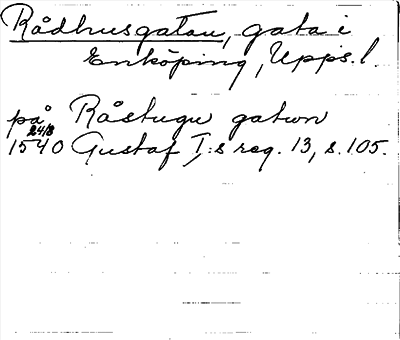 Rådhusgatan, gata i
Enköping, Upps. l.
på Råstugu gatun
24/8
1540 Gustaf I:s reg. 13, s. 105.